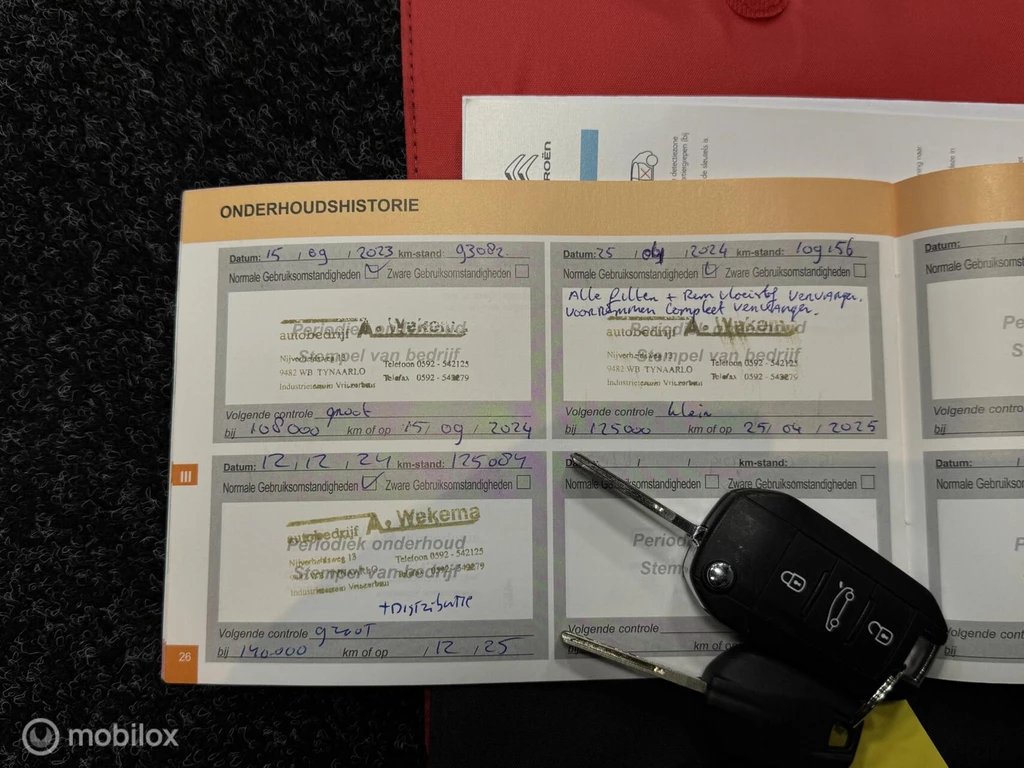 ROËN
ONDERHOUDSHISTORIE
Datum: 15 , 09 , 2023 km-stand: 93082
Normale Gebruiksomstandigheden Zware Gebruiksomstandigheden
Periodiek onderhoud
autobedrijf A. Wekema
Stempel van bedrijf
Nijverheidsweg 13
9482 WB TYNAARLO
Telefoon 0592 - 542125
Telefax 0592 -
Volgende controle groot
bij 108000 km of op 15/ 09 / 2024
Datum: 25 , 04 , 2024 km-stand: 109156
Normale Gebruiksomstandigheden Zware Gebruiksomstandigheden
Alle filters + Rem vloeistof vervangen.
voorremmen compleet vervangen.
Periodiek onderhoud
autobedrijf A. Wekema
Stempel van bedrijf
9482 WB TYNAARLO
Telefoon 0592 - 542125
Telefax 0592 -
Volgende controle klein
bij 125000 km of op 25/ 04 / 2025
Datum: 12 , 12 , 24 km-stand: 125084
Normale Gebruiksomstandigheden Zware Gebruiksomstandigheden
autobedrijf A. Wekema
Periodiek onderhoud
Nijverheidsweg 13
Telefoon 0592 - 542125
Stempel van bedrijf
+Distributie
Volgende controle groot
bij 140.000 km of op , 12 , 25
Datum: / / km-stand:
Normale Gebruiksomstandigheden Zware Gebruiksomstandigheden
Period
Stem
Volgende controle
bij km of op
Datum: /
Normale Gebruiksoms
Volgende contro
bij
Datum: /
Normale Gebruiksoms
III
26
mobilox